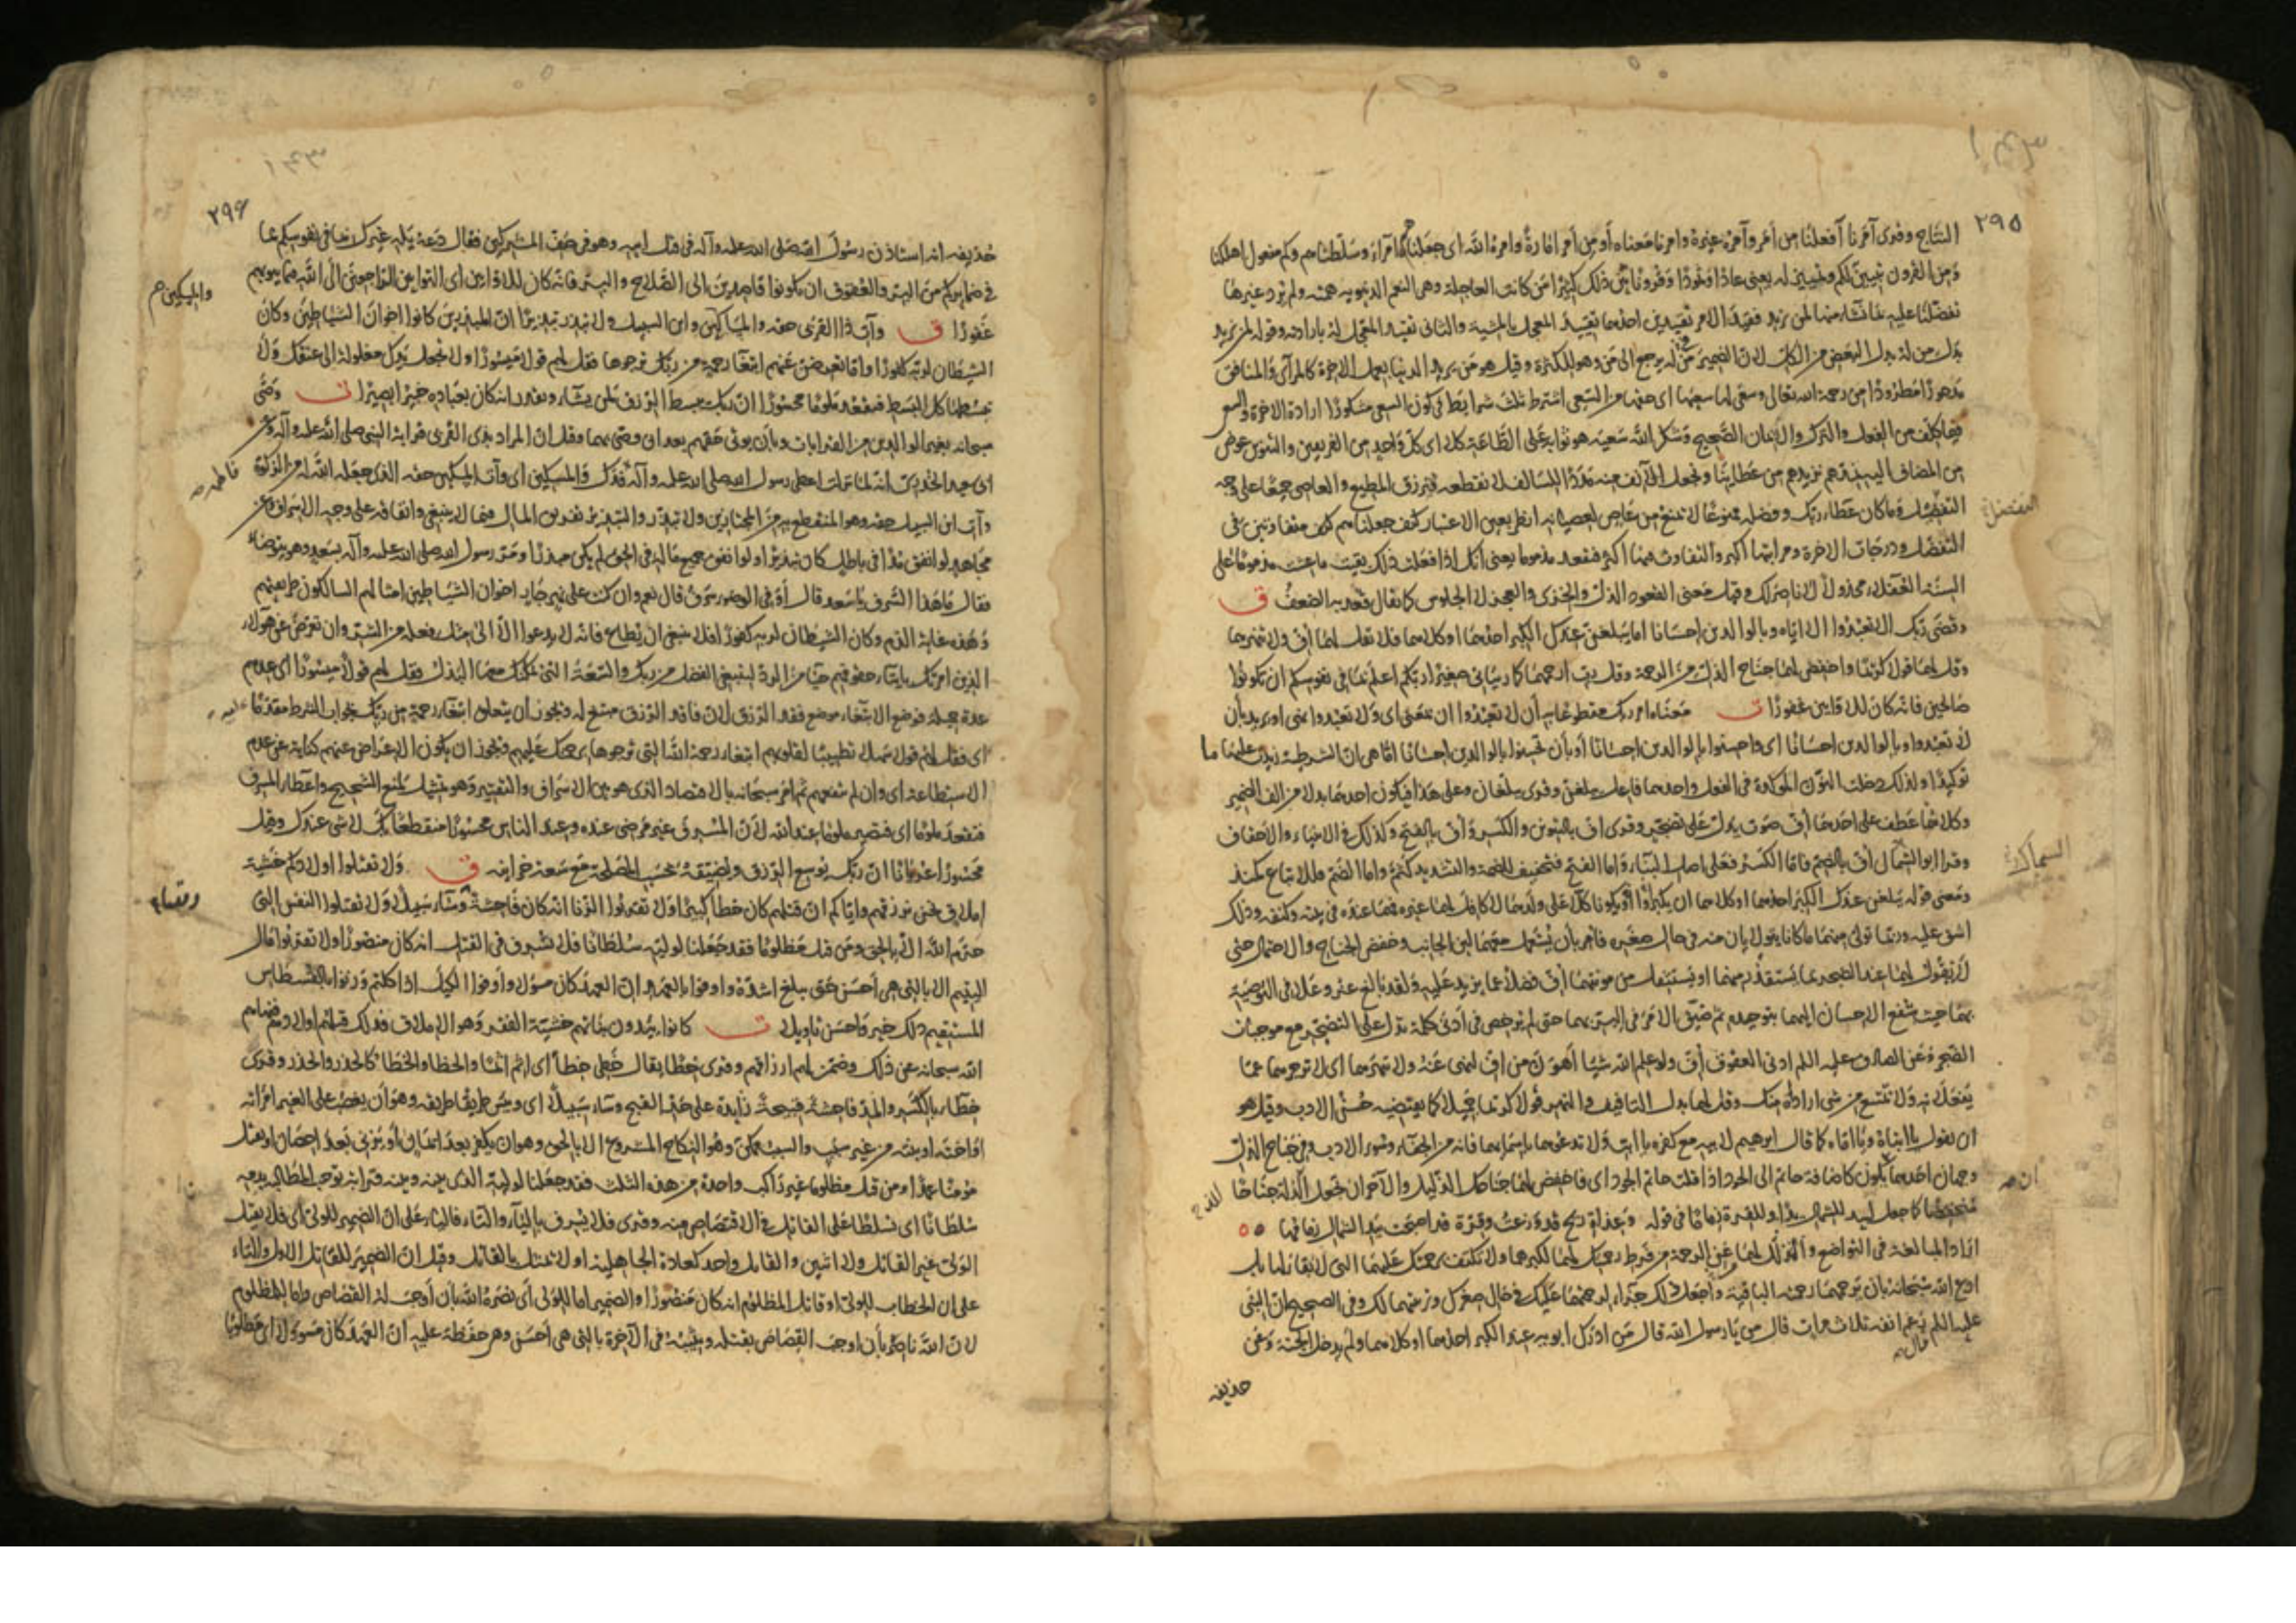 ٢٩٥
النتاج وقرئ آمرنا أفعلنا من أمر وآمره غيره وامرنا بمعناه أو من أمر امارة وامره الله اى جعلناهم امراء وسلطناهم وكم مفعول اهلكنا
ومن القرون تبيين لكم وتمييز له يعنى عادا وثمودا وقرونا بين ذلك كثيرا من كانت العاجلة وهى النعم الدنيوية همته ولم يرد غيرها
تفضلنا عليه بما نشاء منها لمن نريد فقيد الامر تقييدين احدهما تقييد المعجل بالمشية والثانى تقييد المعجل له بارادته وقوله لمن نريد
بدل من له بدل البعض من الكل لان الضمير فى له يرجع الى من وهو للكثرة وقيل هو من يريد الدنيا بعمل الاخرة كالمرآئى والمنافق
مدحورا مطرودا من رحمة الله تعالى وسعى لها سعيها اى حقها من السعى اشترط ثلث شرايط فى كون السعى مشكورا ارادة الاخرة والسعى
فيما كلف من الفعل والترك والايمان الصحيح وشكر الله سعيه هو ثوابه على الطاعة كلا اى كل واحد من الفريقين والتنوين عوض
من المضاف اليه نمدهم نزيدهم من عطائنا ونجعل الآنف منه مددا للسالف لا نقطعه فنرزق المطيع والعاصى جميعا على وجه
التفضل وما كان عطاء ربك وفضله ممنوعا لا يمنع من عاص لعصيانه انظر بعين الاعتبار كيف جعلناهم متفاوتين فى
التفضل ودرجات الاخرة ومراتبها اكبر والتفاوت فيها اكثر فتقعد مذموما يعنى أنك اذا فعلت ذلك بقيت ما عشت مذموما على
السنة العقلاء مخذولا لا ناصر لك وقيل معنى القعود الذل والخزى والعجز لا الجلوس كما يقال قعد به الضعف ق
وقضى ربك الا تعبدوا الا اياه وبالوالدين احسانا اما يبلغن عندك الكبر احدهما او كلاهما فلا تقل لهما أف ولا تنهرهما
وقل لهما قولا كريما واخفض لهما جناح الذل من الرحمة وقل رب ارحمهما كما ربيانى صغيرا ربكم اعلم بما فى نفوسكم ان تكونوا
صالحين فانه كان للاوابين غفورا ت معناه امر ربك مقطوعا به أن لا تعبدوا ان بمعنى اى ولا تعبدوا نهى او يريد بأن
لا تعبدوا وبالوالدين احسانا اى واحسنوا بالوالدين احسانا أو بأن تحسنوا بالوالدين احسانا اما هى ان الشرطية زيدت عليها ما
توكيدا ولذلك دخلت النون المؤكدة فى الفعل واحدهما فاعل يبلغن وقرئ يبلغان وعلى هذا فيكون احدهما بدلا من الف الضمير
وكلاهما عطف على احدهما أف صوت يدل على تضجر وقرئ اف بالتنوين والكسر وأف بالفتح وكذلك فى الانبياء والاحقاف
وقرا ابو السمال أف بالضم فاما الكسر فعلى اصل البناء واما الفتح فتخفيف للضمة والتشديد كثم واما الضم فللاتباع كمنذ
ومعنى قوله يبلغن عندك الكبر احدهما او كلاهما ان يكبرا او يكونا كلا على ولدهما لا كافل لهما غيره فهما عنده فى بيته وكنفه وذلك
اشق عليه وربما تولى منهما ما كانا يتوليان منه فى حال صغره فامر بأن يستعمل معهما لين الجانب وخفض الجناح والاحتمال حتى
لا يقول لهما عند الضجر بما يستقذر منهما او يستثقل من مونتهما أف فضلا عما يزيد عليه ولقد بالغ عز وعلا فى التوصية
بهما حيث شفع الاحسان اليهما بتوحيده ثم ضيق الامر فى البر بهما حتى لم يرخص فى أدنى كلمة تدل على التضجر مع موجبات
الضجر وعن الصادق عليه السلم ادنى العقوق أف ولو علم الله شيئا أهون من اف لنهى عنه ولا تنهرهما اى لا تزجرهما عما
يفعلانه ولا تمتنع من شئ اراداه منك وقل لهما بدل التافيف والنهر قولا كريما جميلا كما يقتضيه حسن الادب وقيل هو
ان يقول يا ابتاه ويا اماه كما قال ابرهيم لابيه مع كفره يا ابت ولا تدعهما باسمائهما فانه من الجفاء وسوء الادب وفى جناح الذل
وجهان احدهما ان يكون كاضافة حاتم الى الجود اذا قلت حاتم الجود اى فاخفض لهما جناحك الذليل والآخر ان تجعل الذلة جناحا
منخفضا كما جعل لبيد للشمال يدا وللقرة زماما فى قوله وغداة ريح قد وزعت وقرة قد اصبحت بيد الشمال زمامها
اراد المبالغة فى التواضع والتذلل لهما من الرحمة من فرط رحمتك لهما لكبرهما ولا تكتف برحمتك عليهما التى لا بقاء لها بل
ادع الله سبحانه بأن يرحمهما رحمته الباقية واجعل ذلك جزاء لرحمتهما عليك فى حال صغرك وتربيتهما لك وفى الصحيح ان النبى
عليه السلم قال رغم انفه ثلاث مرات قال من يا رسول الله قال من ادرك ابويه عند الكبر احدهما او كلاهما ولم يدخل الجنة وعن
حذيفه
٢٩۶
حذيفه انه استاذن رسول الله صلى الله عليه وآله فى قتل ابيه وهو فى صف المشركين فقال دعه يليه غيرك بما فى نفوسكم بما
فى ضمايركم من البر والعقوق ان تكونوا قاصدين الى الصلاح والبر فانه كان للاوابين اى التوابين الراجعين الى الله فيما ينوبهم
غفورا ق وآت ذا القربى حقه والمسكين وابن السبيل ولا تبذر تبذيرا ان المبذرين كانوا اخوان الشياطين وكان
الشيطان لربه كفورا واما تعرضن عنهم ابتغاء رحمة من ربك ترجوها فقل لهم قولا ميسورا ولا تجعل يدك مغلولة الى عنقك ولا
تبسطها كل البسط فتقعد ملوما محسورا ان ربك يبسط الرزق لمن يشاء ويقدر انه كان بعباده خبيرا بصيرا ت وصى
سبحانه بغير الوالدين من القرابات وبأن يوتى حقهم بعد ان وصى بهما وقيل ان المراد بذى القربى قرابة النبى صلى الله عليه وآله وعن
ابى سعيد الخدرى انه لما نزلت اعطى رسول الله صلى الله عليه وآله فاطمة فدك والمسكين اى وآت المسكين حقه الذى جعله الله له من الزكوة
وآت ابن السبيل حقه وهو المنقطع به من المجتازين ولا تبذر والتبذير تفريق المال فيما لا ينبغى وانفاقه على وجه الاسراف وعن
مجاهد لو انفق مدا فى باطل كان تبذيرا ولو انفق جميع ماله فى الحق لم يكن مبذرا ومر رسول الله صلى الله عليه وآله بسعد وهو يتوضأ
فقال ما هذا السرف يا سعد قال أو فى الوضوء سرف قال نعم وان كنت على نهر جار اخوان الشياطين امثالهم السالكون طريقتهم
وهذه غاية الذم وكان الشيطان لربه كفورا فلا ينبغى ان يطاع فانه لا يدعوا الا الى مثل فعله من الشر وان تعرض عن هولاء
الذين امرتك بايتاء حقوقهم حيا من الرد لتبتغى الفضل من ربك والسعة التى يمكنك معها البذل فقل لهم قولا ميسورا اى عدهم
عدة جميلة فوضع الابتغاء موضع فقد الرزق لان فاقد الرزق مبتغ له ويجوز أن يتعلق ابتغاء رحمة من ربك بجواب الشرط مقدما عليه
اى فقل لهم قولا سهلا تطييبا لقلوبهم ابتغاء رحمة الله التى ترجوها برحمتك عليهم ويجوز ان يكون الاعراض عنهم كناية عن عدم
الاستطاعة اى وان لم تنفعهم ثم امر سبحانه بالاقتصاد الذى هو بين الاسراف والتقتير وهو تمثيل لمنع الشحيح واعطاء المسرف
فتقعد ملوما اى فتصير ملوما عند الله لان المسرف غير مرضى عنده وعند الناس محسورا منقطعا بك لا شئ عندك وقيل
محسورا عريانا ان ربك يوسع الرزق ويضيقه بحسب المصلحة مع سعة خزائنه ق ولا تقتلوا اولادكم خشية
املاق نحن نرزقهم واياكم ان قتلهم كان خطأ كبيرا ولا تقربوا الزنا انه كان فاحشة وساء سبيلا ولا تقتلوا النفس التى
حرم الله الا بالحق ومن قتل مظلوما فقد جعلنا لوليه سلطانا فلا تسرف فى القتل انه كان منصورا ولا تقربوا مال
اليتيم الا بالتى هى أحسن حتى يبلغ اشده واوفوا بالعهد ان العهد كان مسؤلا واوفوا الكيل اذا كلتم وزنوا بالقسطاس
المستقيم ذلك خير واحسن تاويلا ت كانوا يئدون بناتهم خشية الفقر وهو الاملاق فذلك قتلهم اولادهم فنهاهم
الله سبحانه عن ذلك وضمن لهم ارزاقهم وقرئ خطأ يقال خطئ خطأ اى اثم اثما والخطا والخطأ كالحذر والحذر وقرئ
خطاء بالكسر والمد فاحشة قبيحة زايدة على حد القبح وساء سبيلا اى وبئس طريقا طريقه وهو أن يغصب على الغير امراته
او اخته او بنته من غير سبب والسبب ممكن وهو النكاح المشروع الا بالحق وهو ان يكفر بعد ايمان او يزنى بعد احصان او يقتل
مؤمنا عمدا ومن قتل مظلوما غير راكب واحدة من هذه الثلث فقد جعلنا لوليه الذى بينه وبينه قرابة توجب المطالبة بدمه
سلطانا اى تسلطا على القاتل فى الاقتصاص منه وقرئ فلا يسرف بالياء والتاء فالياء على ان الضمير للولى اى فلا يقتل
الولى غير القاتل ولا اثنين والقاتل واحد كعادة الجاهلية او لا تمثل بالقاتل وقيل ان الضمير للقاتل الاول والتاء
على ان الخطاب للولى او قاتل المظلوم انه كان منصورا والضمير اما للولى أى نصره الله بأن أوجب له القصاص واما للمظلوم
لان الله ناصره بأن اوجب القصاص بقتله ويثيبه فى الآخرة بالتى هى أحسن وهو حفظه عليه ان العهد كان مسؤلا اى مطلوبا